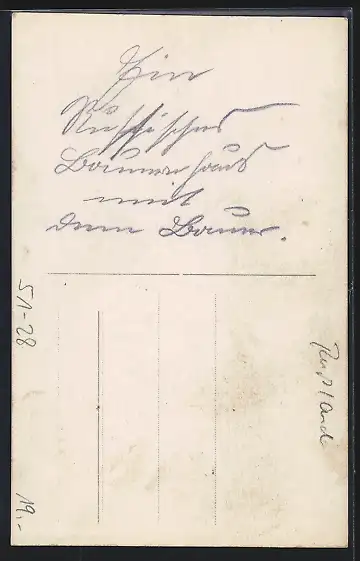 Ein
Russisches
Bauernhaus
mit
dem Bauer.
51-28
Rußland
19,-